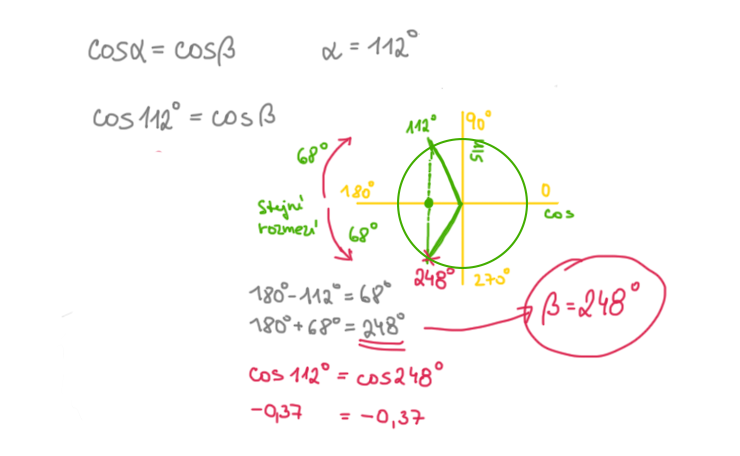 cosα = cosβ
α = 112°
cos112° = cosβ
112°
90°
sin
68°
180°
0
cos
Stejné
rozmezí
68°
248°
270°
180° - 112° = 68°
180° + 68° = 248°
β = 248°
cos112° = cos248°
-0,37 = -0,37